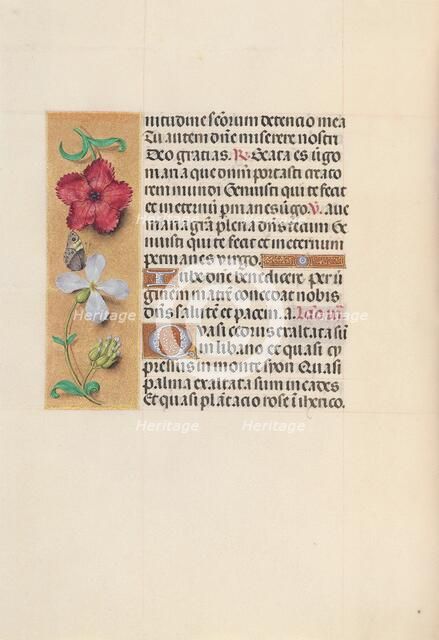 nitudine sctōrum detencio mea
Tu autem dñe miserere nostri
Deo gratias. R. Beata es ūgo
maria que dnm portasti creato
rem mundi Genuisti qui te fecit
et ineternū pmanes ūgo. V. Aue
maria grā plena dns tecum Ge
nuisti qui te fecit et ineternum
permanes virgo.
Iube dōne benedicere. per ū
ginem matrē concedat nobis
dns salutē et pacem. a. Lectio
Quasi cedrus exaltata sū
in libano et quasi cy
pressus in monte syon Quasi
palma exaltata sum in cades
Et quasi plātacio rose ī iherico.
Heritage Heritage
Heritage
Heritage Heritage
Heritage Heritage